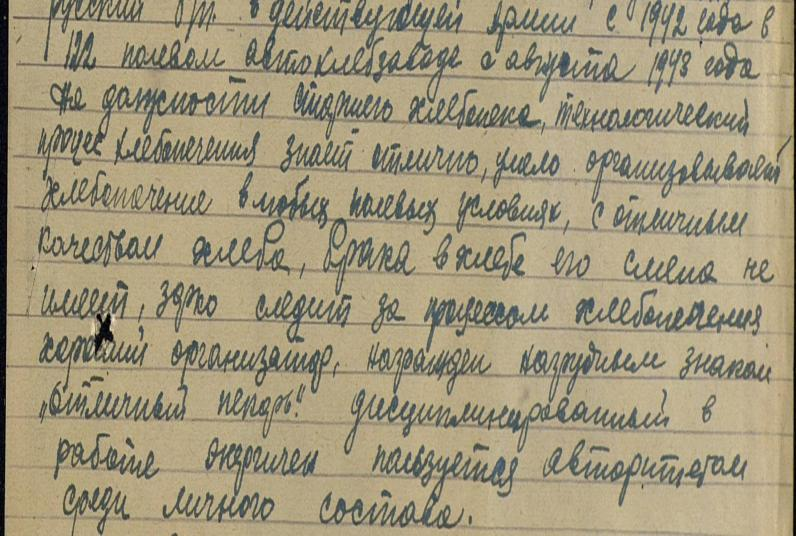 русский б/п. в действующей армии с 1942 года в
122 полевом автохлебзаводе с августа 1943 года
на должности старшего хлебопека, технологический
процес хлебопечения знает отлично, умело организовывает
хлебопечение в любых полевых условиях, с отличным
качеством хлеба, брака в хлебе его смена не
имеет, зорко следит за процессом хлебопечения
хороший организатор, награжден нагрудным знаком
„Отличный пекарь". дисциплинированный в
работе энергичен пользуется авторитетом
среди личного состава.